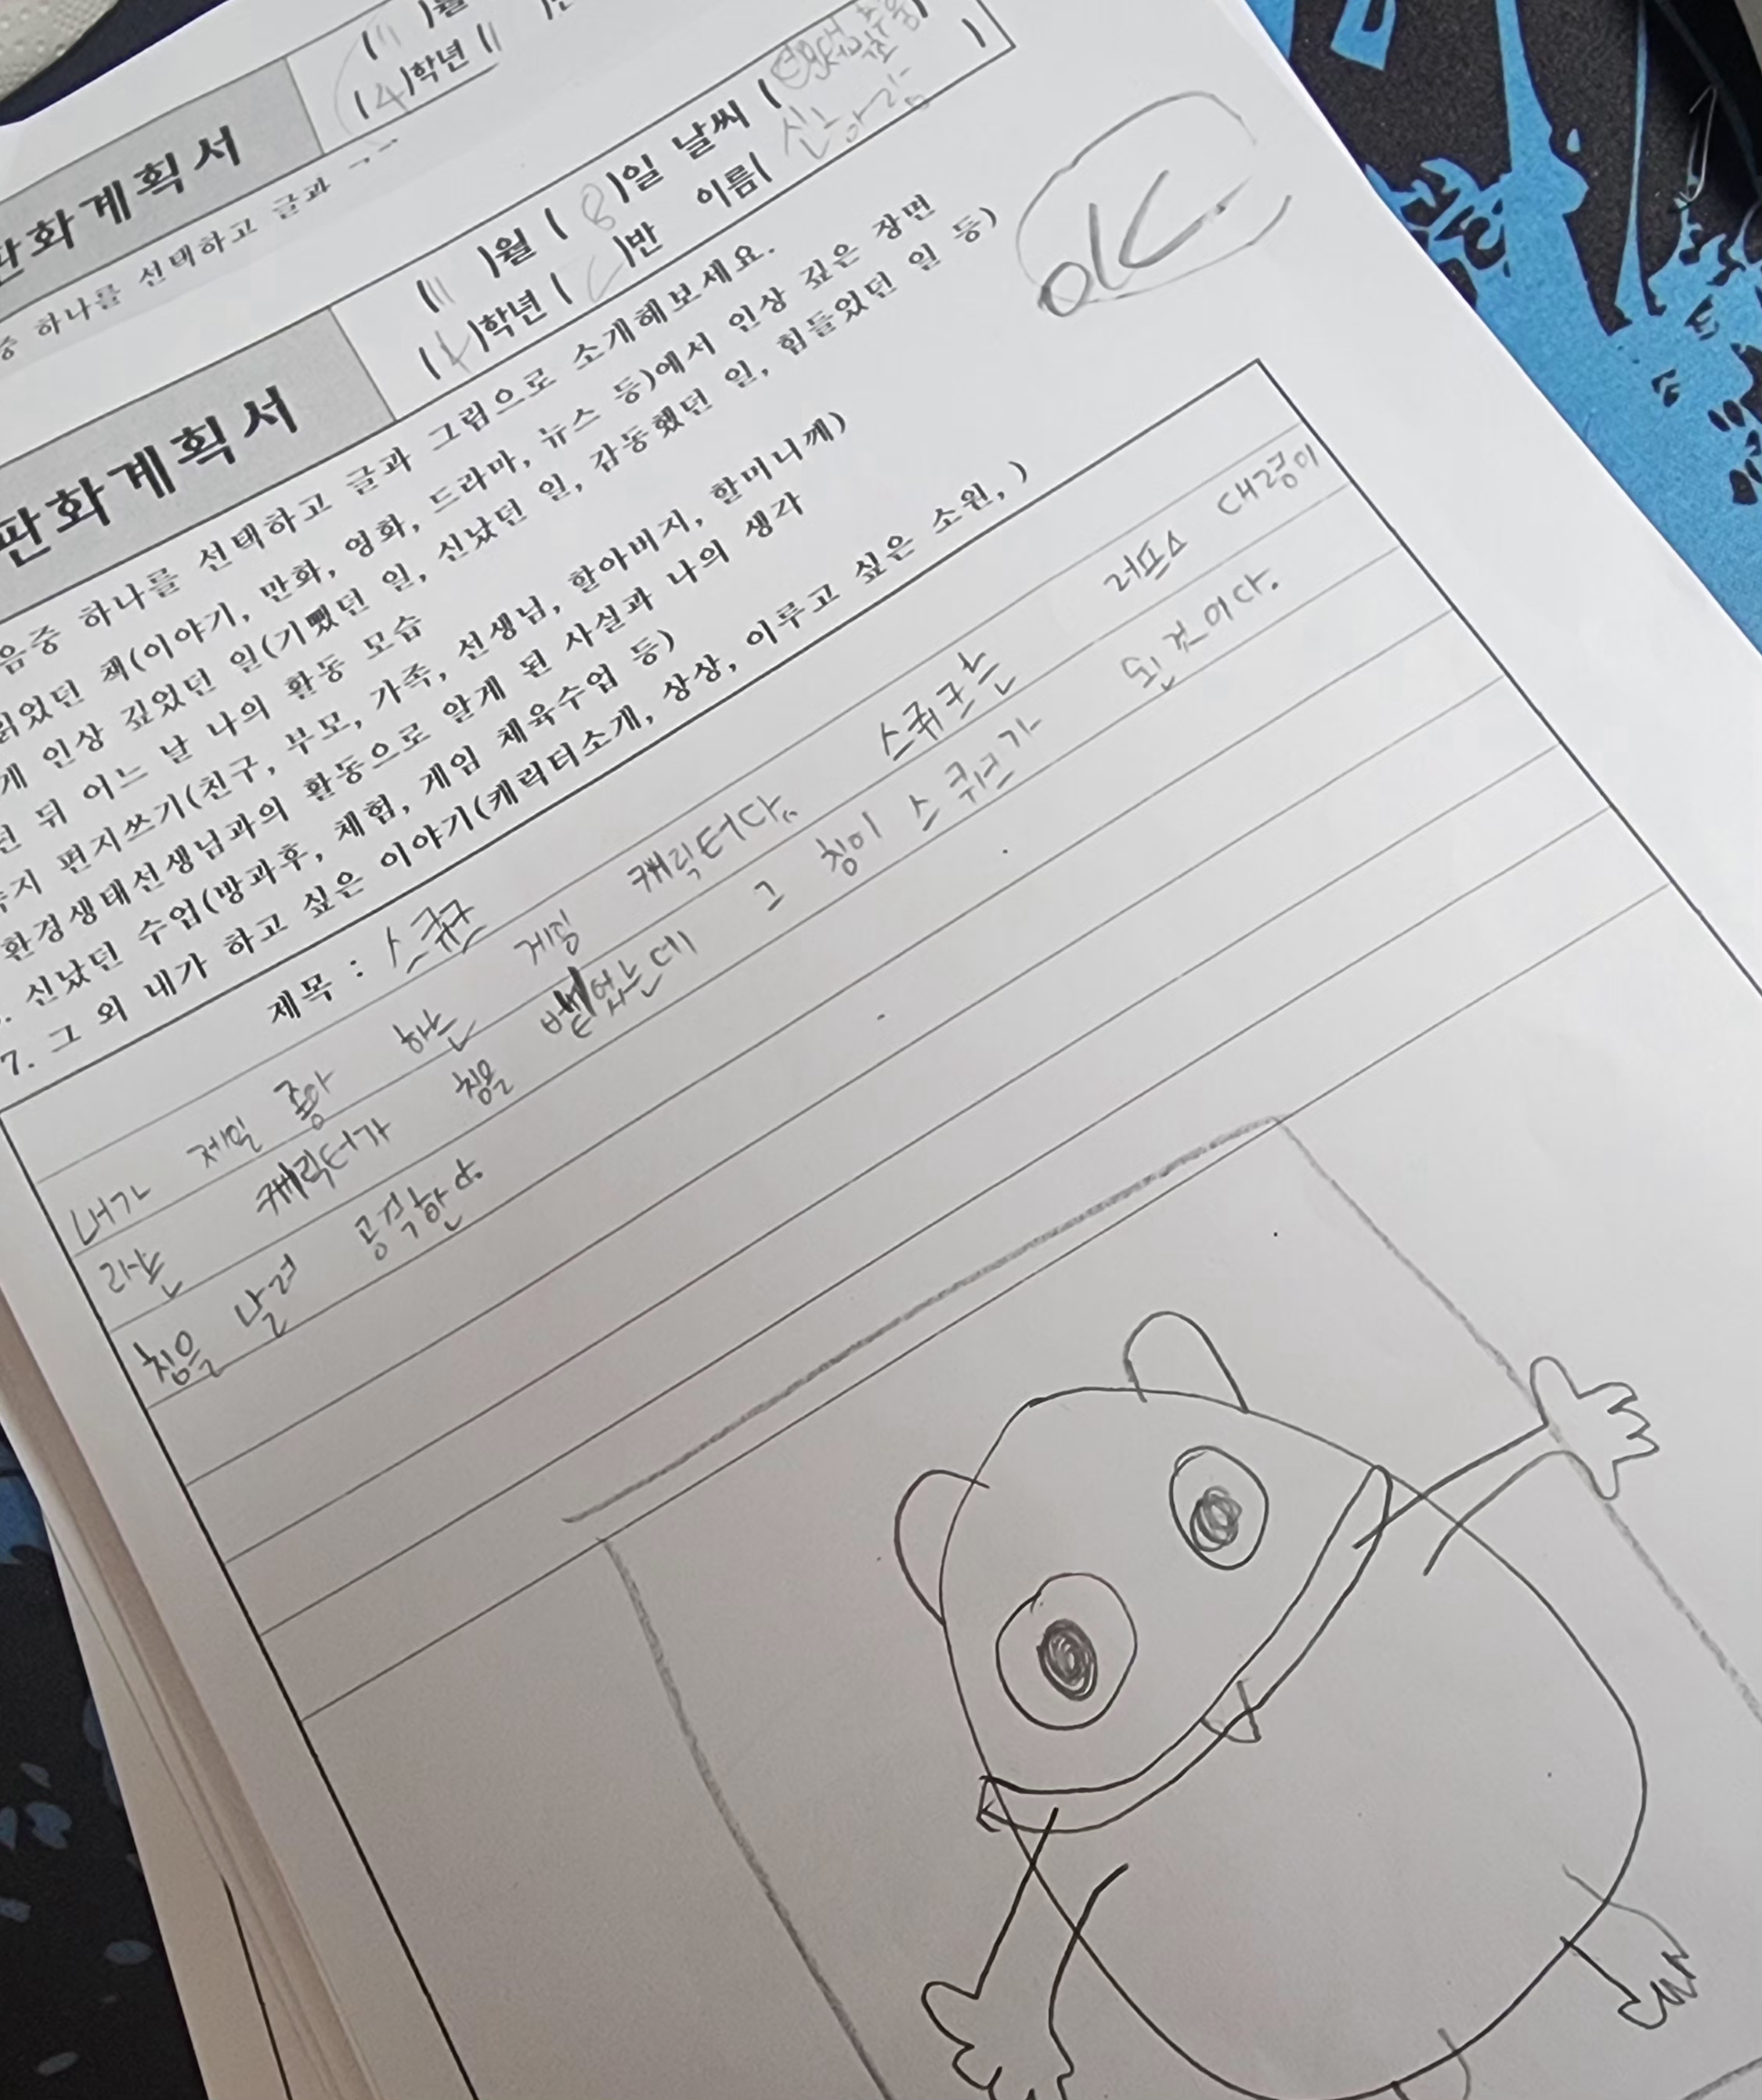 )월
(4)학년 (11
판화계획서
중 하나를 선택하고 글과
(11 )월 ( 8 )일 날씨 ( )
(4)학년 ( )반 이름( 신아람
판화계획서
OK
음중 하나를 선택하고 글과 그림으로 소개해보세요.
읽었던 책(이야기, 만화, 영화, 드라마, 뉴스 등)에서 인상 깊은 장면
게 인상 깊었던 일(기뻤던 일, 신났던 일, 감동했던 일, 힘들었던 일 등)
뒤 어느 날 나의 활동 모습
지 편지쓰기(친구, 부모, 가족, 선생님, 할아버지, 할머니께)
환경생태선생님과의 활동으로 알게 된 사실과 나의 생각
신났던 수업(방과후, 체험, 게임 체육수업 등)
7. 그 외 내가 하고 싶은 이야기(캐릭터소개, 상상, 이루고 싶은 소원, )
제목 : 스퀴크
내가 제일 좋아 하는 게임 캐릭터다. 스퀴크는 러프스 대령이
라는 캐릭터가 침을 뱉었는데 그 침이 스퀴크가 된 것이다.
침을 날려 공격한다.